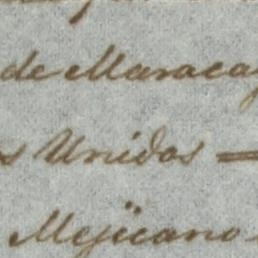 de Maracay
s Unidos =
Mejicano